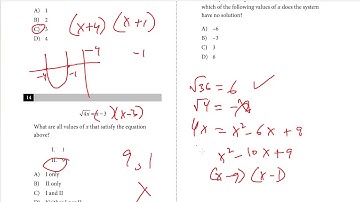 A) 1
B) 2
C) 3
D) 4
(x+4) (x+1)
-4
-1
-4
-1
14
√4x = x-3 )(x-3)
What are all values of x that satisfy the equation
above?
I. 1
II. 9
A) I only
B) II only
C) I and II
9, 1
x
which of the following values of a does the system
have no solution?
A) -6
B) -3
C) 3
D) 6
√36 = 6 ✓
√4 = -2
4x = x² - 6x + 9
x² - 10x + 9
(x-9) (x-1)